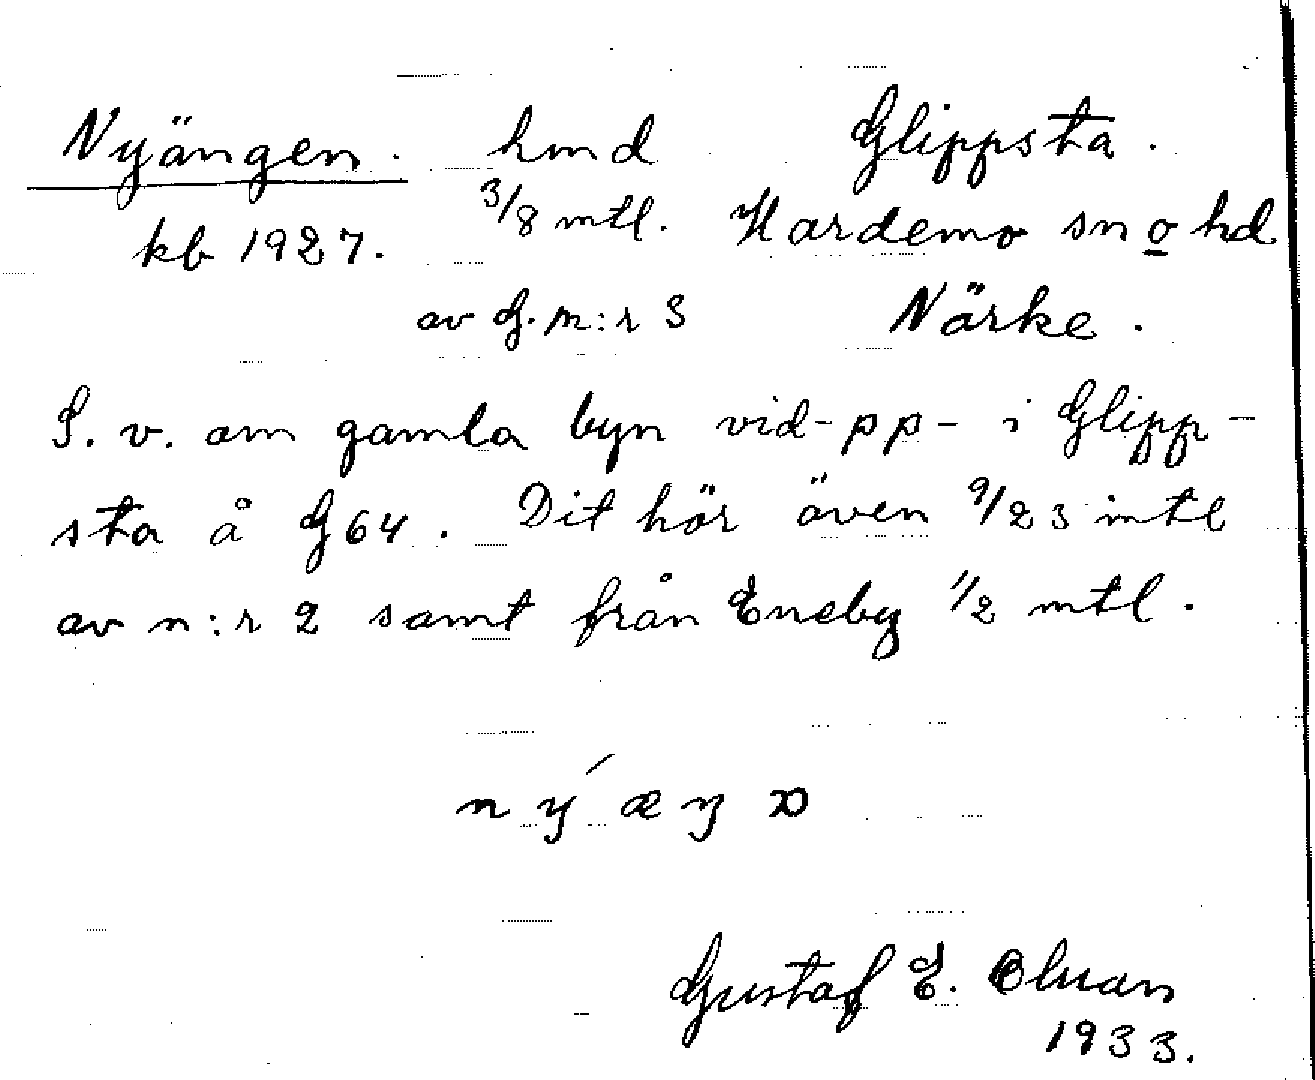 Nyängen. hmd Glippsta.
kb 1927. 3/8 mtl. Hardemo sn o hd
av G. n:r 3 Närke.
S. v. om gamla byn vid -pp- i Glipp-
sta å G64. Dit hör även 9/23 mtl
av n:r 2 samt från Eneby 1/2 mtl.
Gustaf E.
1933.